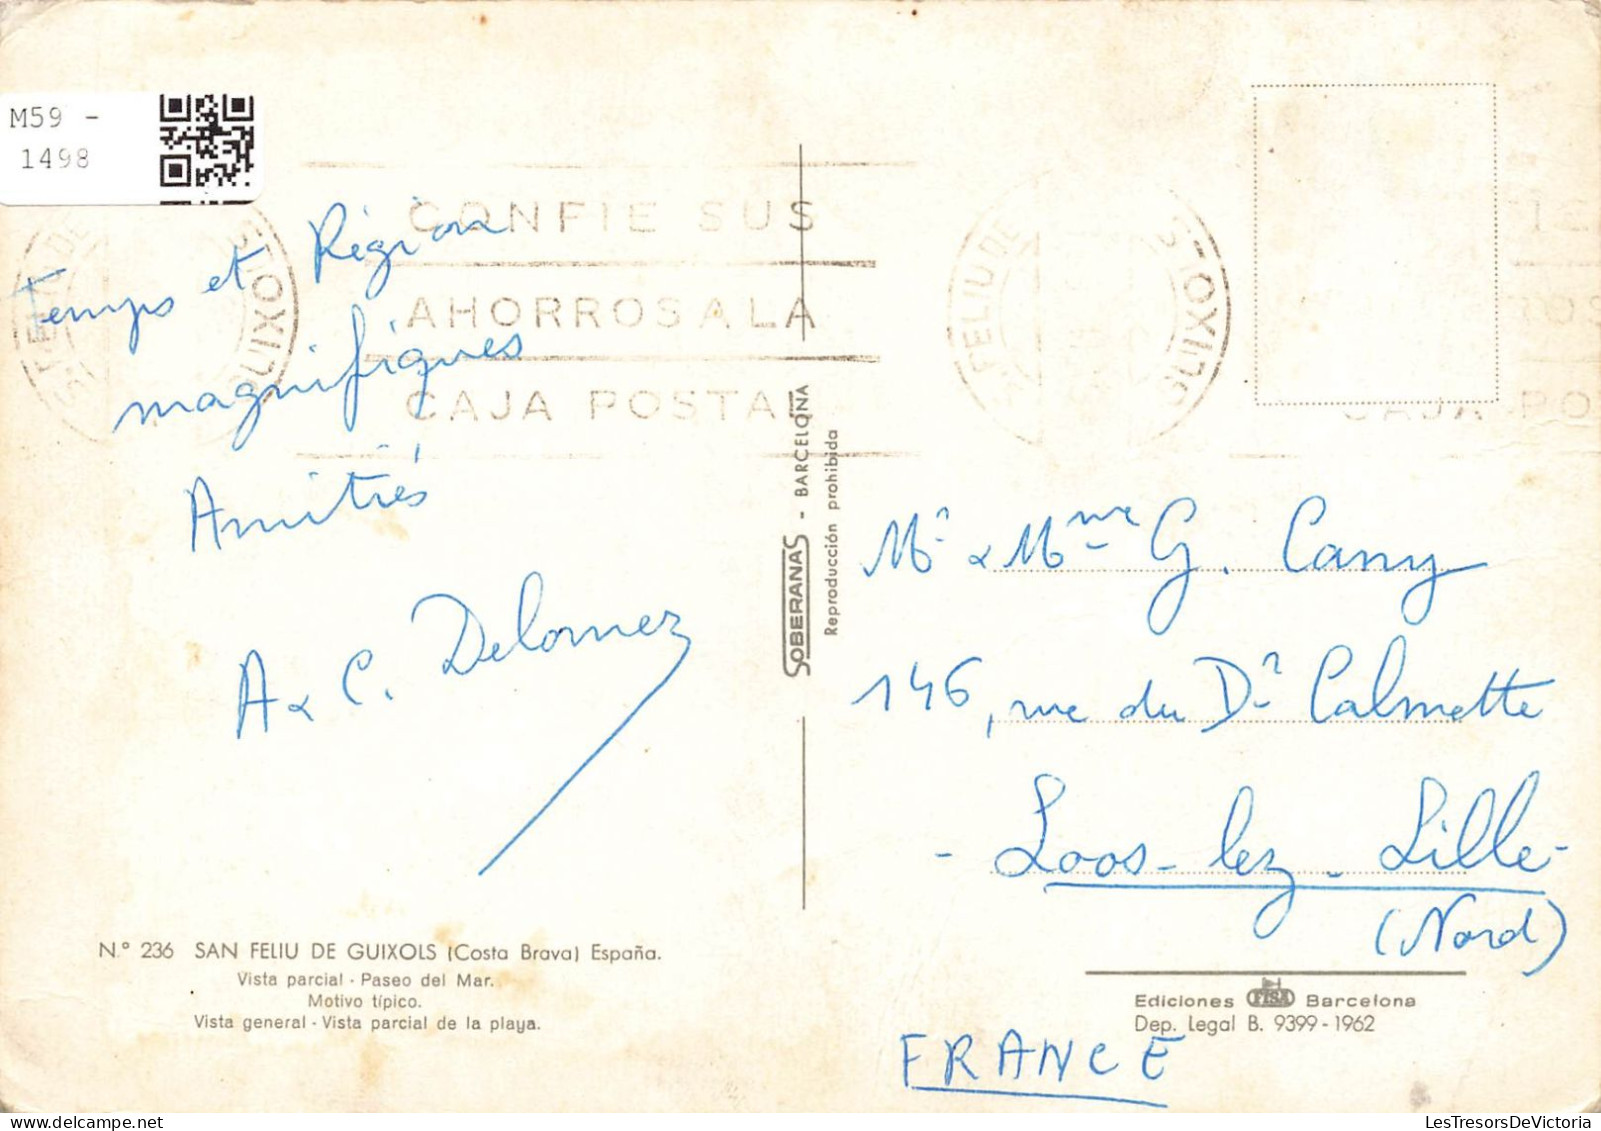 M59 -
1498
CONFIE SUS
AHORROS A LA
CAJA POSTAL
S.FELIU DE GUIXOLS
Temps et Région
magnifiques
Amitiés
A & C. Delomez
Nº 236 SAN FELIU DE GUIXOLS (Costa Brava) España.
Vista parcial - Paseo del Mar.
Motivo típico.
Vista general - Vista parcial de la playa.
SOBERANAS - BARCELONA
Reproducción prohibida
Mr & Mme G. Cany
146, rue du Dr Calmette
- Loos-lez-Lille -
(Nord)
FRANCE
Ediciones FISA Barcelona
Dep. Legal B. 9399-1962
LesTresorsDeVictoria